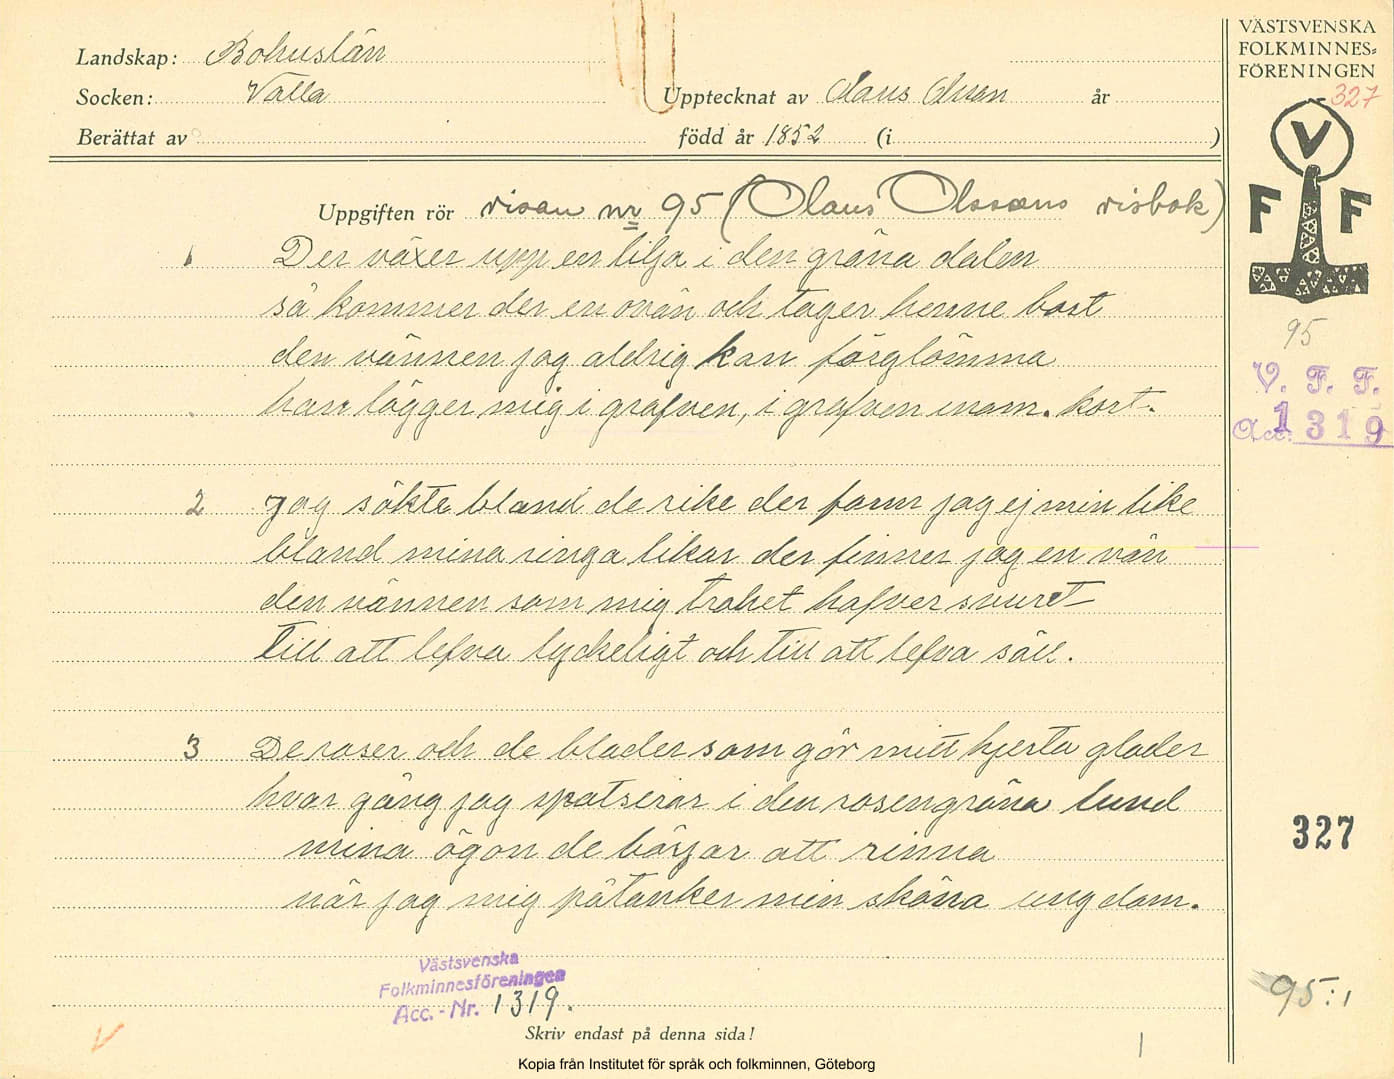 Landskap: Bohuslän
Socken: Valla
Upptecknat av Olaus Olsson år
Berättat av
född år 1852 (i )
Uppgiften rör visan nr 95 (Olaus Olssons visbok)
1 Der växer upp en lilja i den gröna dalen
så kommer der en ovän och tager henne bort
den vännen jag aldrig kan förglömma
han lägger mig i grafven, i grafven inom. kort.
2 Jag sökte bland de rike der fann jag ej min like
bland mina ringa likar der finner jag en vän
den vännen som mig trohet hafver svuret
till att lefva lyckeligt och till att lefva säll.
3 De roser och de blader som gör mitt hjerta glader
hvar gång jag spatserar i den rosengröna lund
mina ögon de börjar att rinna
när jag mig påtanker min sköna ungdom.
Västsvenska
Folkminnesföreningen
Acc.-Nr. 1319.
Skriv endast på denna sida!
Kopia från Institutet för språk och folkminnen, Göteborg
VÄSTSVENSKA
FOLKMINNES=
FÖRENINGEN
327
V
F F
95
V. F. F.
Acc. 1319
327
95:1